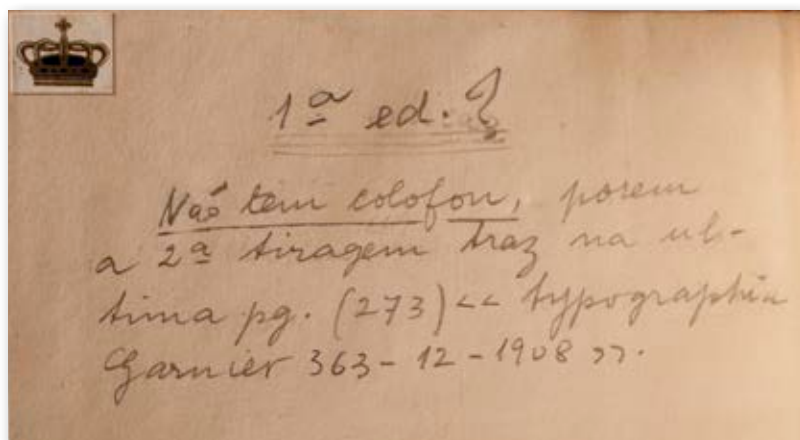 1ª ed.?
Não tem colofon, porem
a 2ª tiragem traz na ul-
tima pg. (273) << typographia
Garnier 363-12-1908 >>.